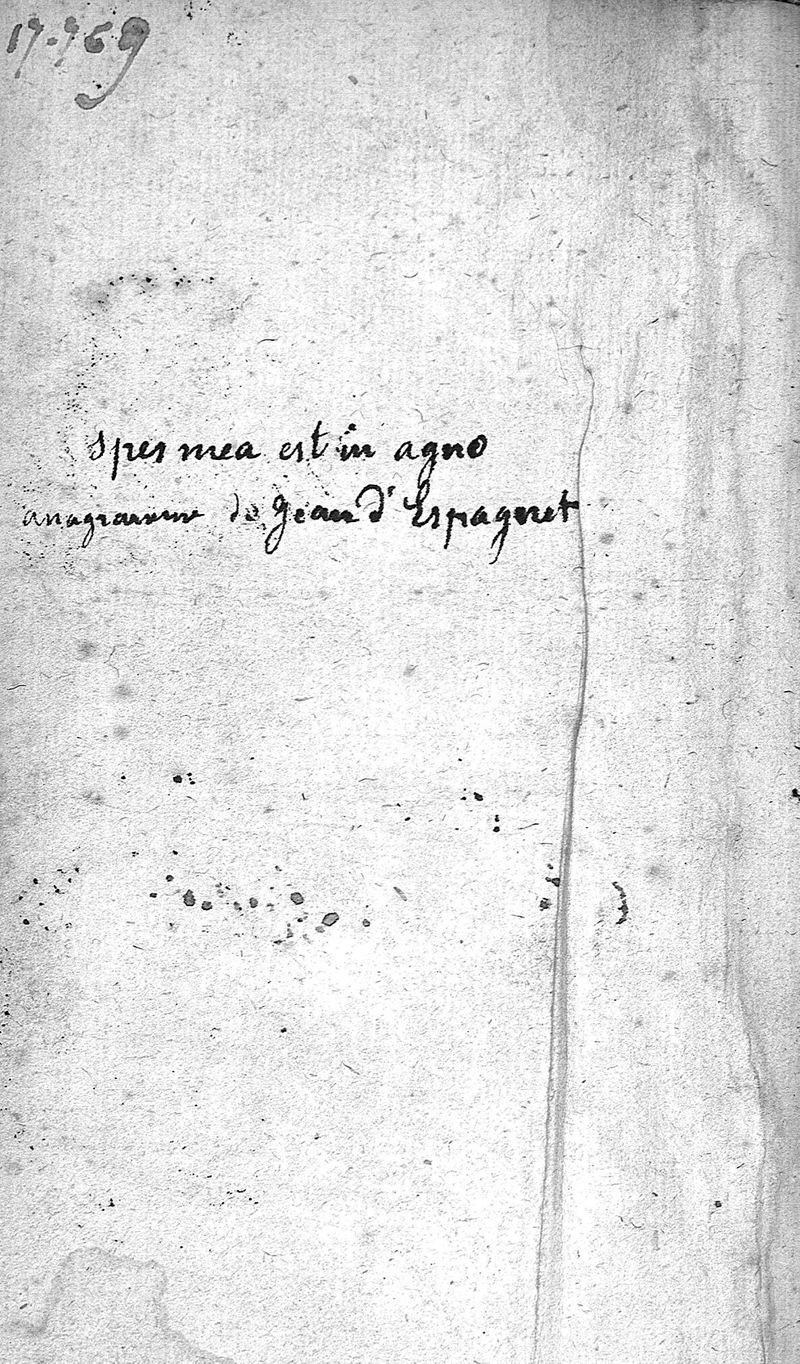 17.769
Spes mea est in agno
anagramme de Jean d'Espagnet